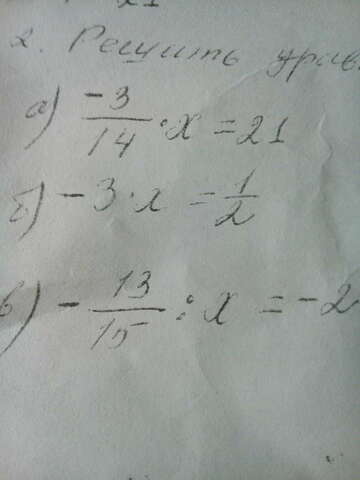 2. Решить урав.
а) -3/14 · x = 21
б) - 3 · x = 1/2
в) - 13/15 : x = -2